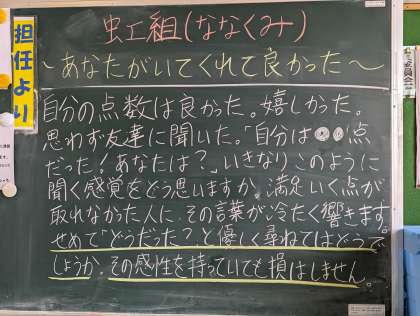 担任より
虹組(ななくみ)
～あなたがいてくれて良かった～
自分の点数は良かった。嬉しかった。
思わず友達に聞いた。「自分は●●点
だった！あなたは？」いきなりこのように
聞く感覚をどう思いますか。満足いく点が
取れなかった人に、その言葉が冷たく響きます。
せめて「どうだった？」と優しく尋ねてはどうで
しょうか。その感性を持っていても損はしません。
委員会